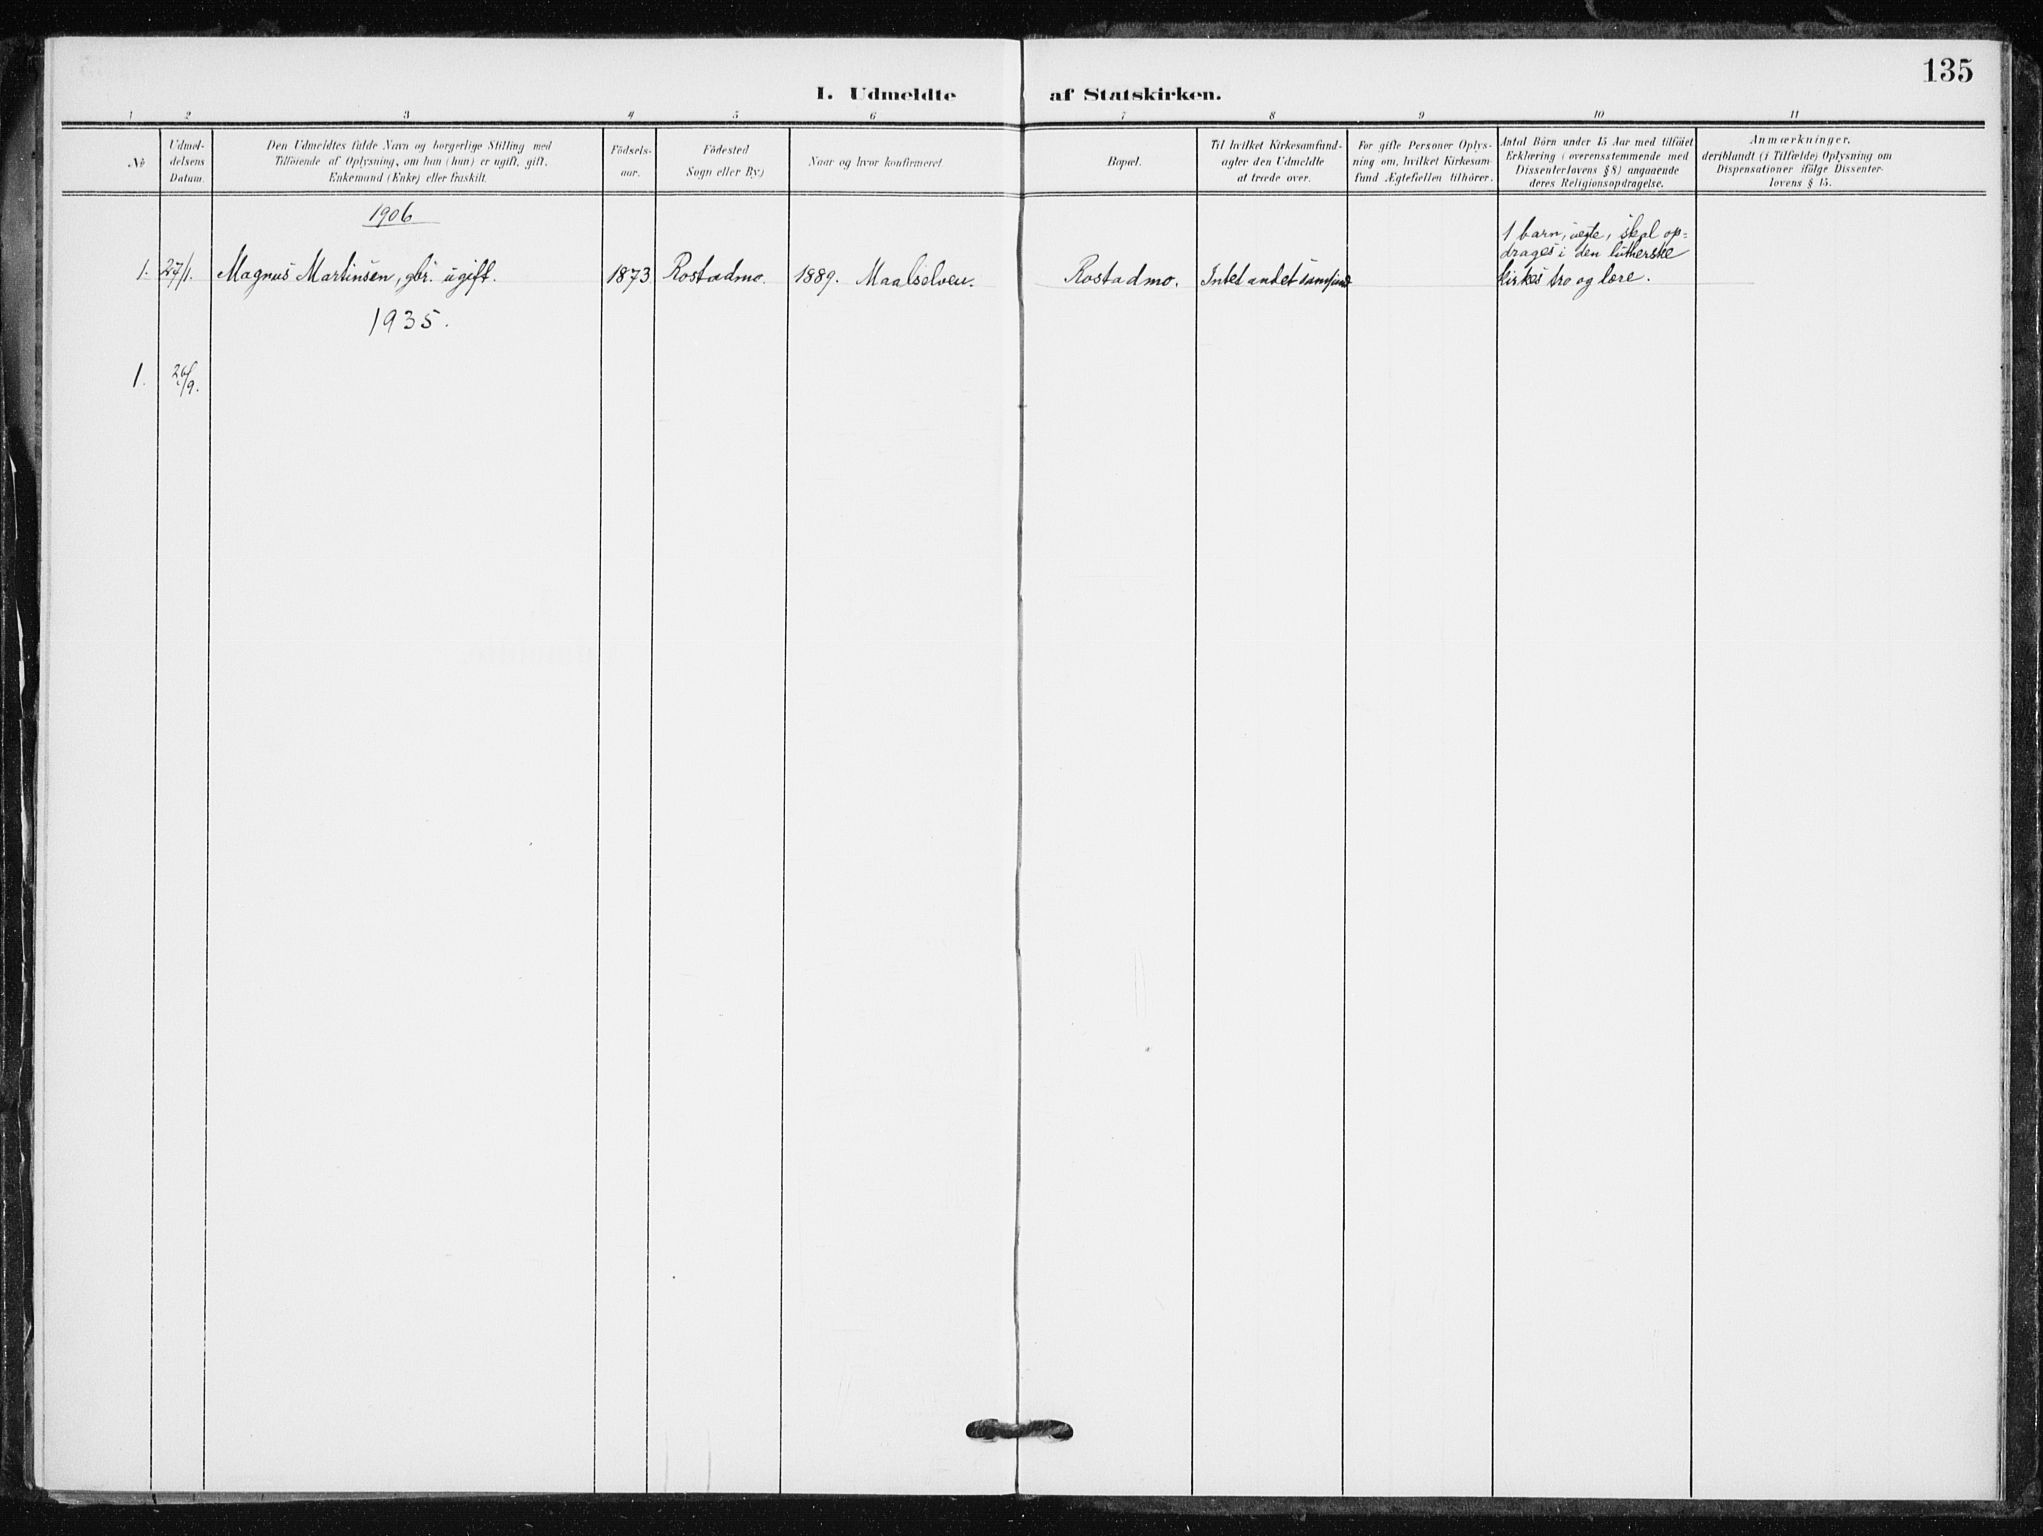 135
I. Udmeldte af Statskirken.
1 2 3 4 5 6 7 8 9 10 11
№
Udmel-
delsens
Datum.
Den Udmeldtes fulde Navn og borgerlige Stilling med
Tilföiende af Oplysning, om han (hun) er ugift, gift,
Enkemand (Enke) eller fraskilt.
Födsels-
aar.
Födested
Sogn eller By.)
Naar og hvor konfirmeret
Bopæl.
Til hvilket Kirkesamfund-
agter den Udmeldte
at træde over.
For gifte Personer Oplys-
ning om, hvilket Kirkesam-
fund Ægtefællen tilhörer.
Antal Börn under 15 Aar med tilföiet
Erklæring (overensstemmende med
Dissenterlovens § 8) angaaende
deres Religionsopdragelse.
Anmærkninger,
deriblandt (i Tilfælde) Oplysning om
Dispensationer ifölge Dissenter-
lovens § 15.
1906
1. 27/1. Magnus Martinsen, gbr. ugift. 1873 Rostadmo. 1889. Maalselven. Rostadmo. Intet andet samfund
1 barn, uegte, skal op-
drages i den lutherske
kirkes tro og lære.
1935.
1. 26/9.